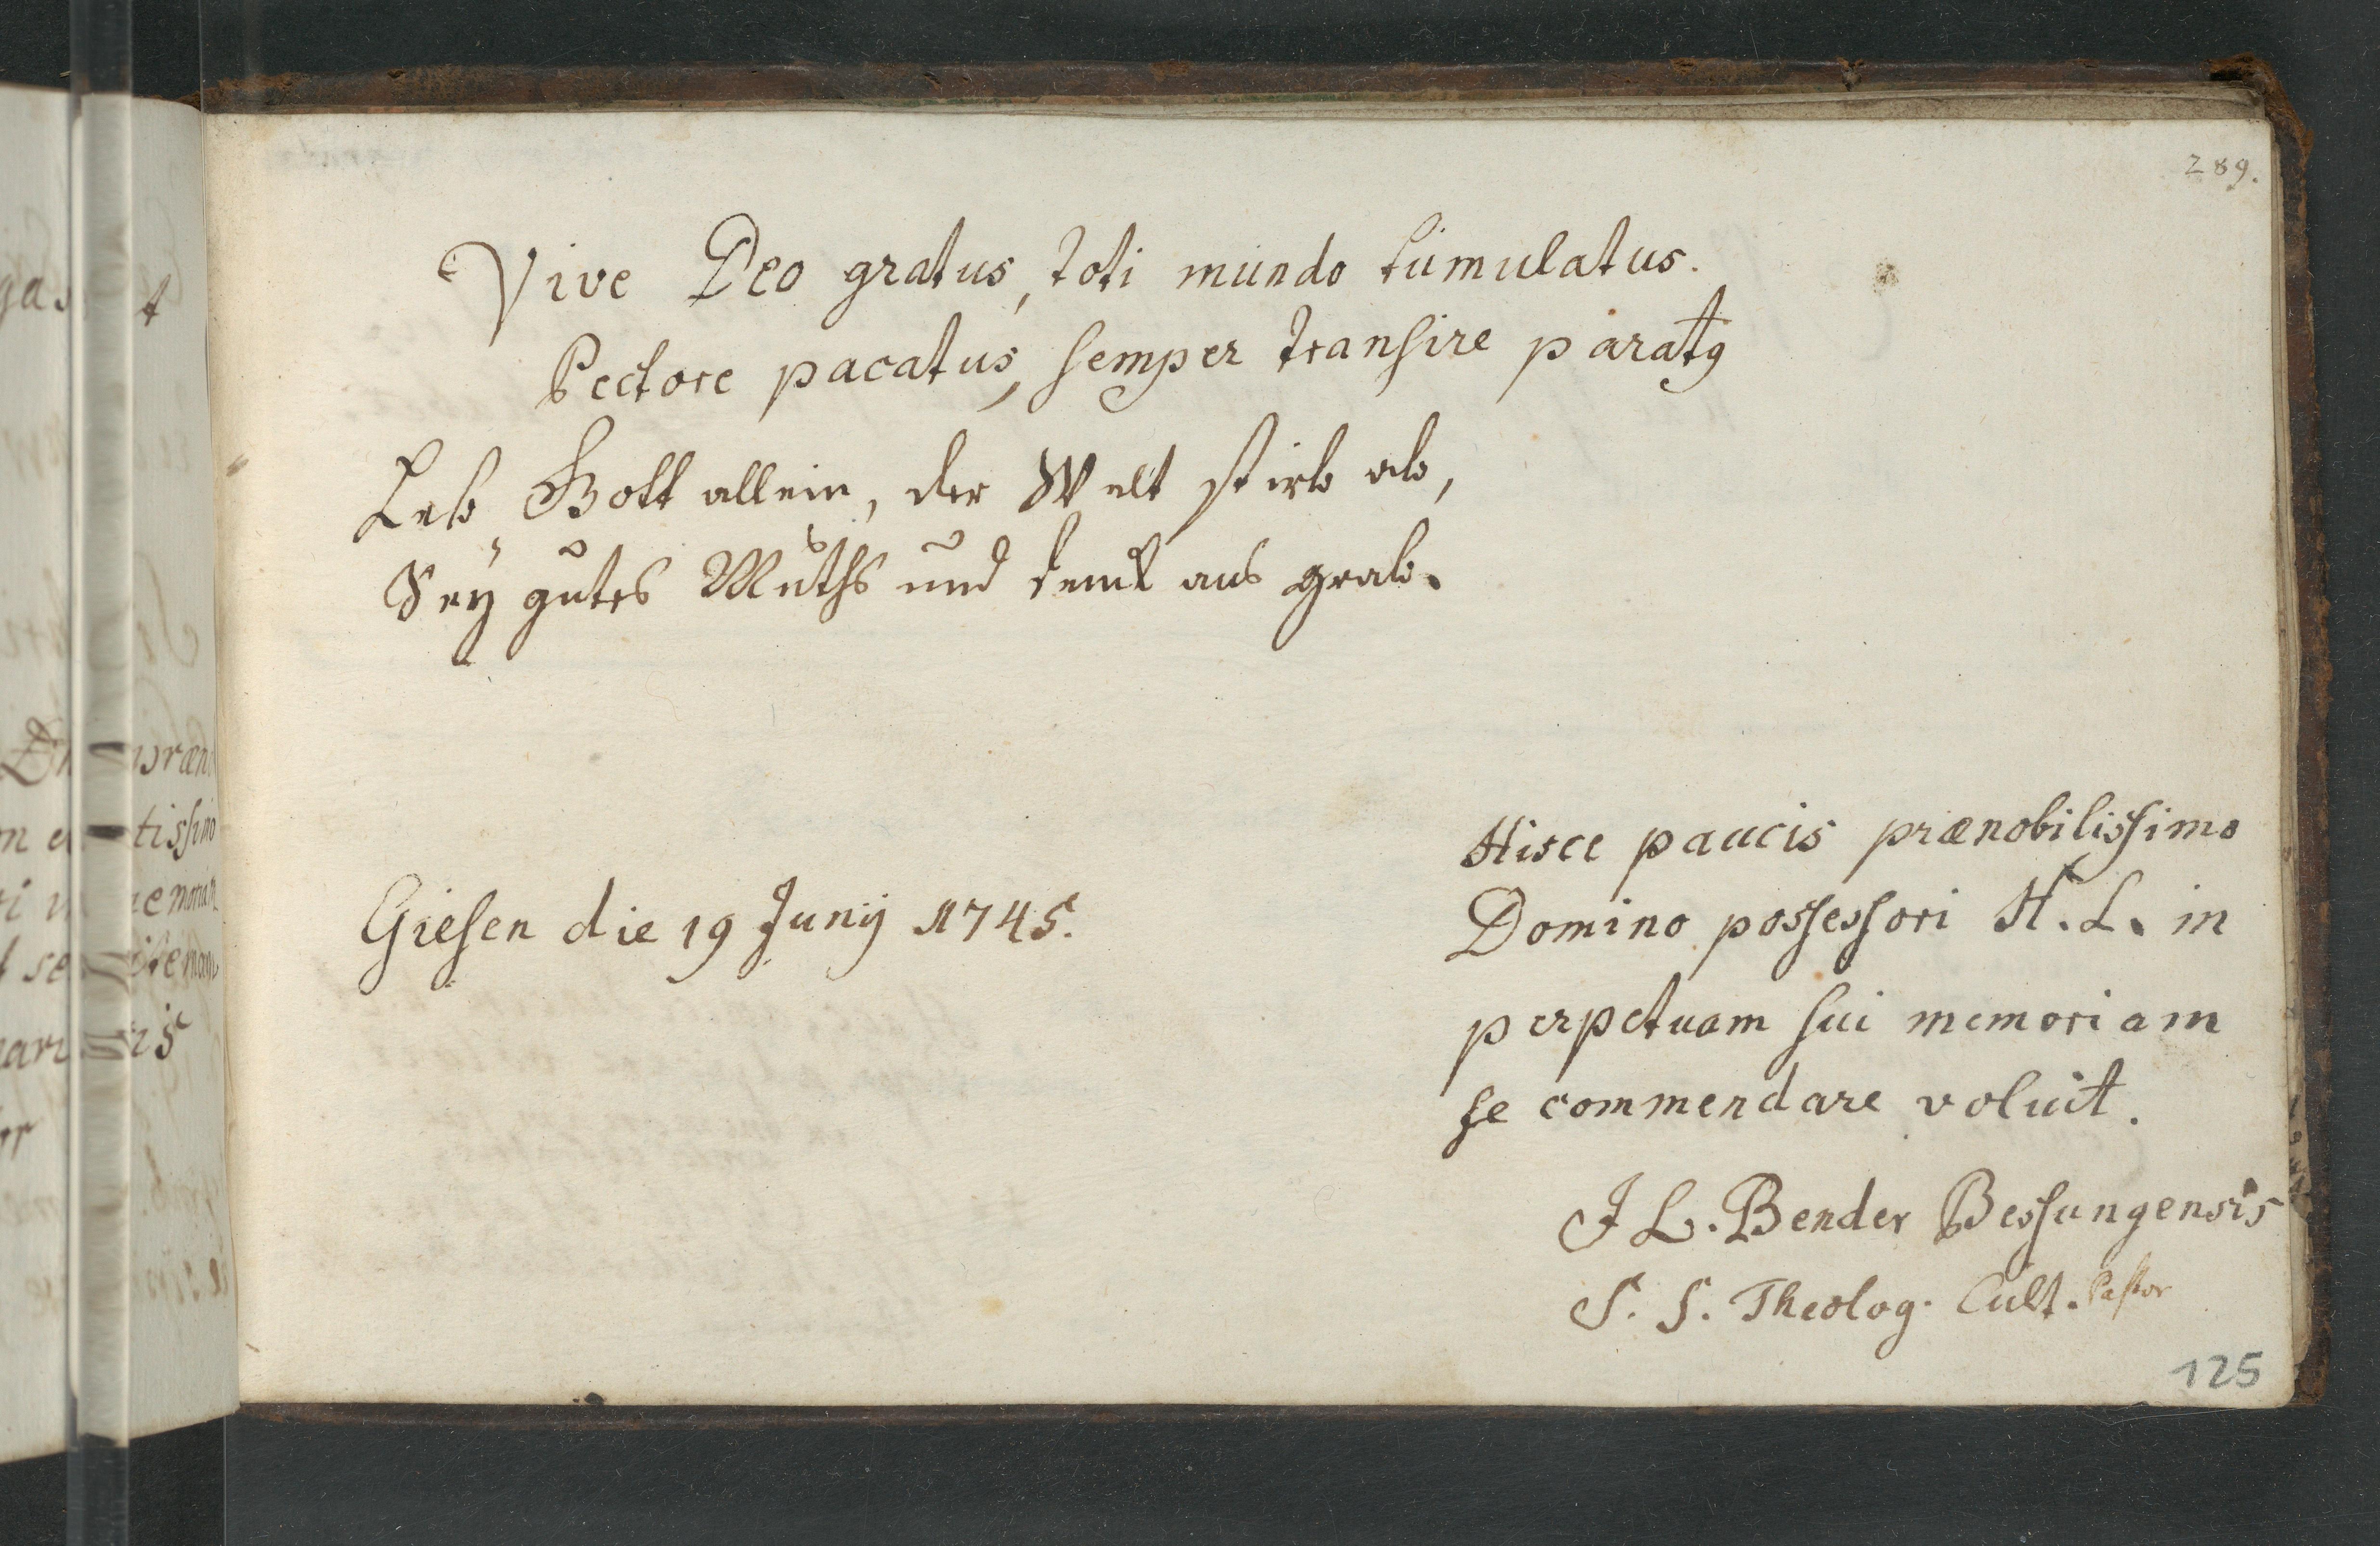 289.
Vive Deo gratus, toti mundo tumulatus.
Pectore pacatus, semper transire paratꝯ
Leb Gott allein, der Welt stirb ab,
Sey gutes Muths und denk ans grab.
Giesen die 19 Junij 1745.
Hisce paucis prænobilissimo
Domino possessori H. L. in
perpetuam sui memoriam
se commendare voluit.
J L. Bender Bessungensis
S. S. Theolog. Cult. Pastor
125